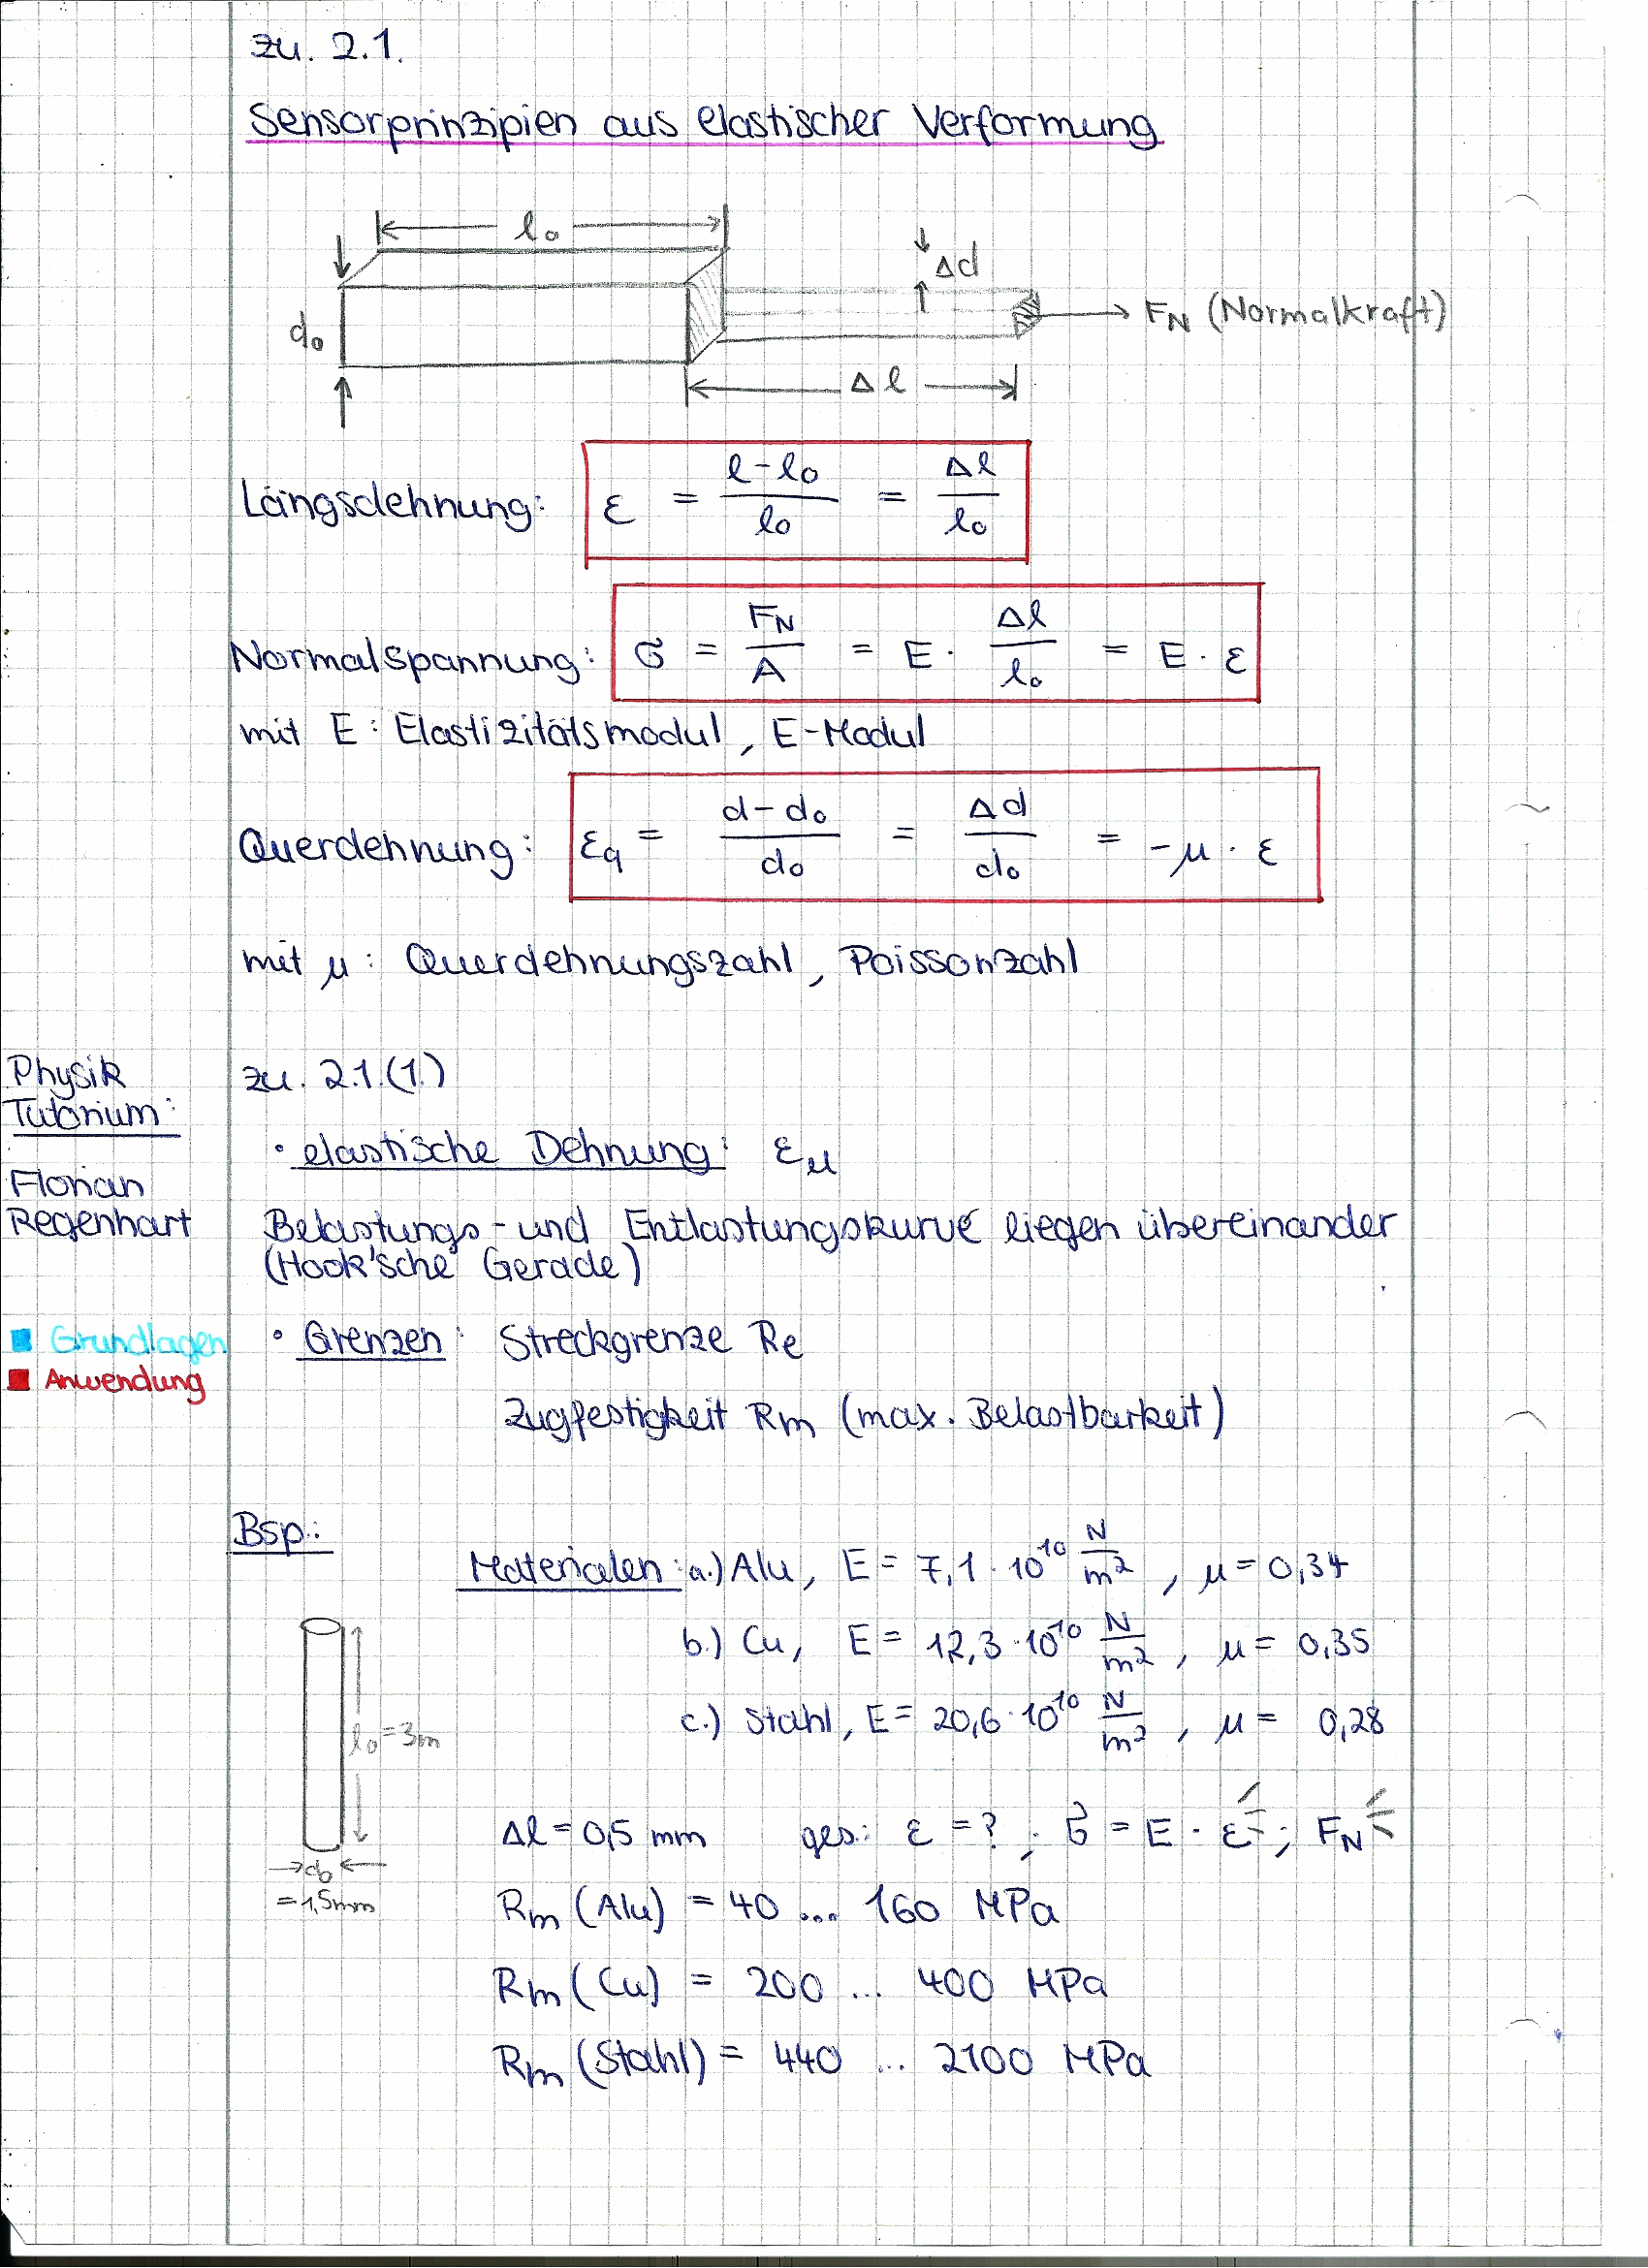 zu. 2.1.
Sensorprinzipien aus elastischer Verformung
l₀
Δd
d₀
F_N (Normalkraft)
Δl
Längsdehnung: ε = (l-l₀)/l₀ = Δl/l₀
Normalspannung: σ = F_N/A = E · Δl/l₀ = E · ε
mit E: Elastizitätsmodul, E-Modul
Querdehnung: ε_q = (d-d₀)/d₀ = Δd/d₀ = -μ · ε
mit μ: Querdehnungszahl, Poissonzahl
Physik
Tutorium:
Florian
Regenhart
zu. 2.1.(1.)
• elastische Dehnung: ε_μ
Belastungs- und Entlastungskurve liegen übereinander
(Hook'sche Gerade)
Grundlagen
Anwendung
• Grenzen: Streckgrenze Re
Zugfestigkeit Rm (max. Belastbarkeit)
Bsp.:
Materialen: a.) Alu, E = 7,1 · 10¹⁰ N/m², μ = 0,34
b.) Cu, E = 12,3 · 10¹⁰ N/m², μ = 0,35
c.) Stahl, E = 20,6 · 10¹⁰ N/m², μ = 0,28
l₀ = 3m
d₀
= 1,5mm
Δl = 0,5 mm ges.: ε = ?; σ = E · ε; F_N
Rm (Alu) = 40 ... 160 MPa
Rm (Cu) = 200 ... 400 MPa
Rm (Stahl) = 440 ... 2100 MPa